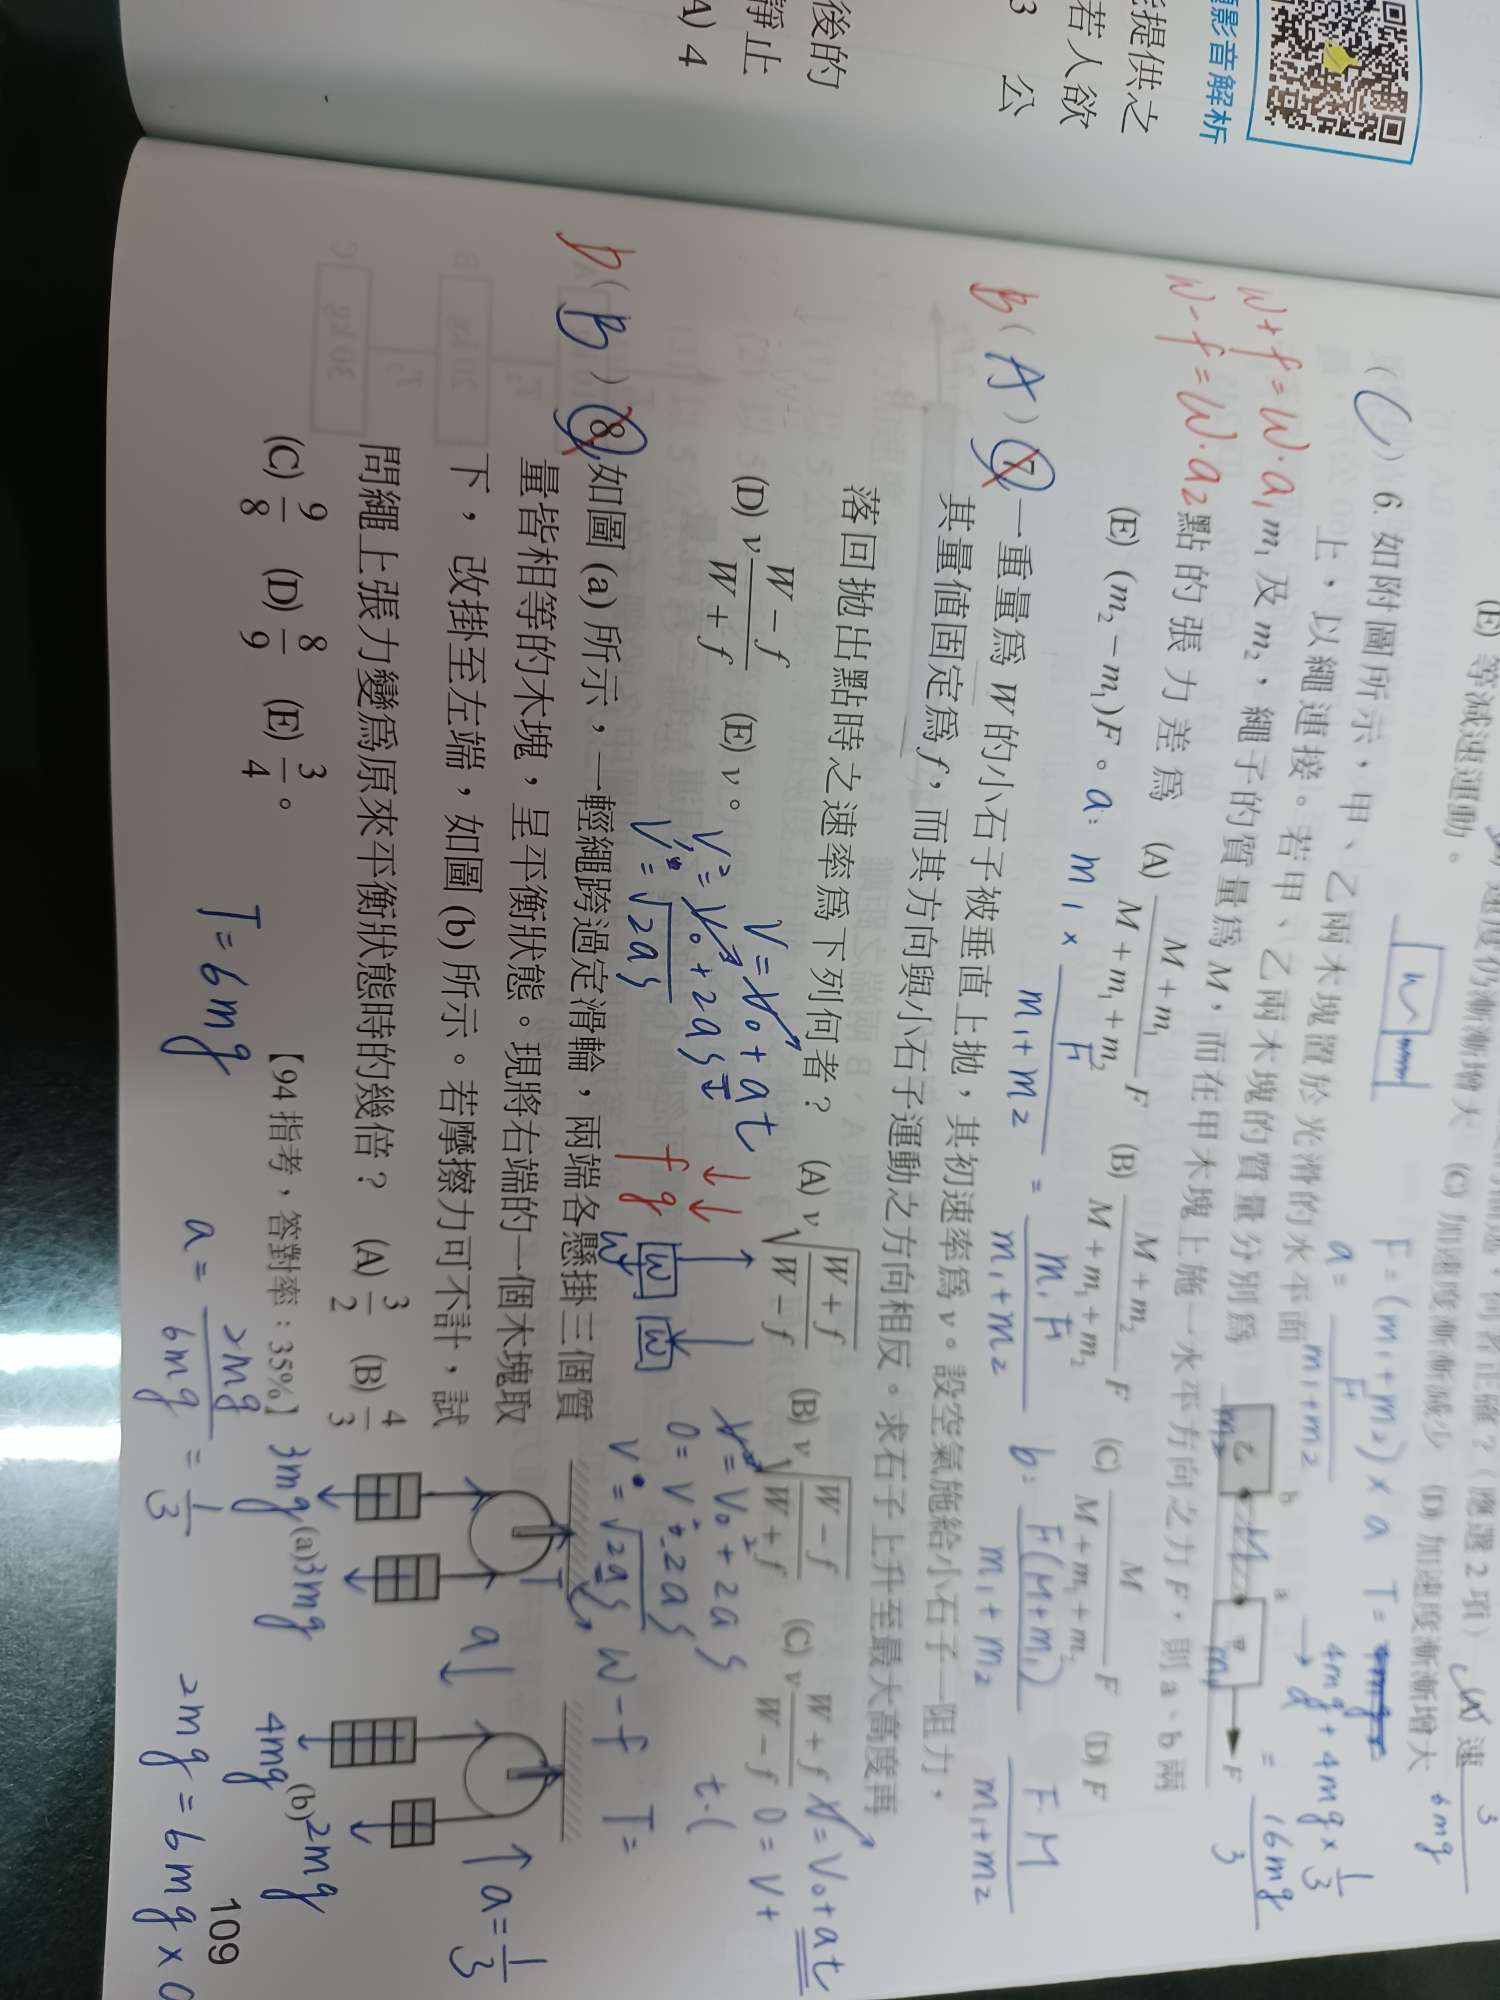 題影音解析
能提供之
若人欲
3 公
後的
靜止
A) 4
(C) 加速度漸漸減少 (D) 加速度漸漸增大
(E) 等減速運動。
(C) 6. 如附圖所示，甲、乙兩木塊置於光滑的水平面
上，以繩連接。若甲、乙兩木塊的質量分別為
m₁ 及 m₂，繩子的質量為 M，而在甲木塊上施一水平方向之力 F，則 a、b 兩
點的張力差為 (A) \frac{M+m₁}{M+m₁+m₂}F (B) \frac{M+m₂}{M+m₁+m₂}F (C) \frac{M}{M+m₁+m₂}F (D) F
(E) (m₂−m₁)F。
乙 b a 甲 F
W+f=W·a₁
W-f=W·a₂
F=(m₁+m₂)×a
a=\frac{F}{m₁+m₂}
4mg+4mg×\frac{1}{3}
=\frac{16mg}{3}
a: m₁×\frac{F}{m₁+m₂}=\frac{m₁F}{m₁+m₂}
b: \frac{F(M+m₁)}{m₁+m₂} \frac{F·M}{m₁+m₂}
B (A) 7. 一重量為 W 的小石子被垂直上拋，其初速率為 v。設空氣施給小石子一阻力，
其量值固定為 f，而其方向與小石子運動之方向相反。求石子上升至最大高度再
落回拋出點時之速率為下列何者？ (A) v\sqrt{\frac{W+f}{W−f}} (B) v\sqrt{\frac{W−f}{W+f}} (C) v\frac{W+f}{W−f}
(D) v\frac{W−f}{W+f} (E) v。
V=V₀+at
V²=V₀²+2as
V=√2as
f g
W W
W
V=V₀²+2as
0=V²-2as
V=√2as
W-f
V=V₀+at
0=V+
t·(
T=
D (B) 8. 如圖 (a) 所示，一輕繩跨過定滑輪，兩端各懸掛三個質
量皆相等的木塊，呈平衡狀態。現將右端的一個木塊取
下，改掛至左端，如圖 (b) 所示。若摩擦力可不計，試
問繩上張力變為原來平衡狀態時的幾倍？ (A) \frac{3}{2} (B) \frac{4}{3}
(C) \frac{9}{8} (D) \frac{8}{9} (E) \frac{3}{4}。
【94 指考，答對率：35%】
T
a
a=\frac{1}{3}
3mg (a) 3mg
4mg (b) 2mg
T=6mg
a=\frac{2mg}{6mg}=\frac{1}{3}
2mg=6mg×a
109